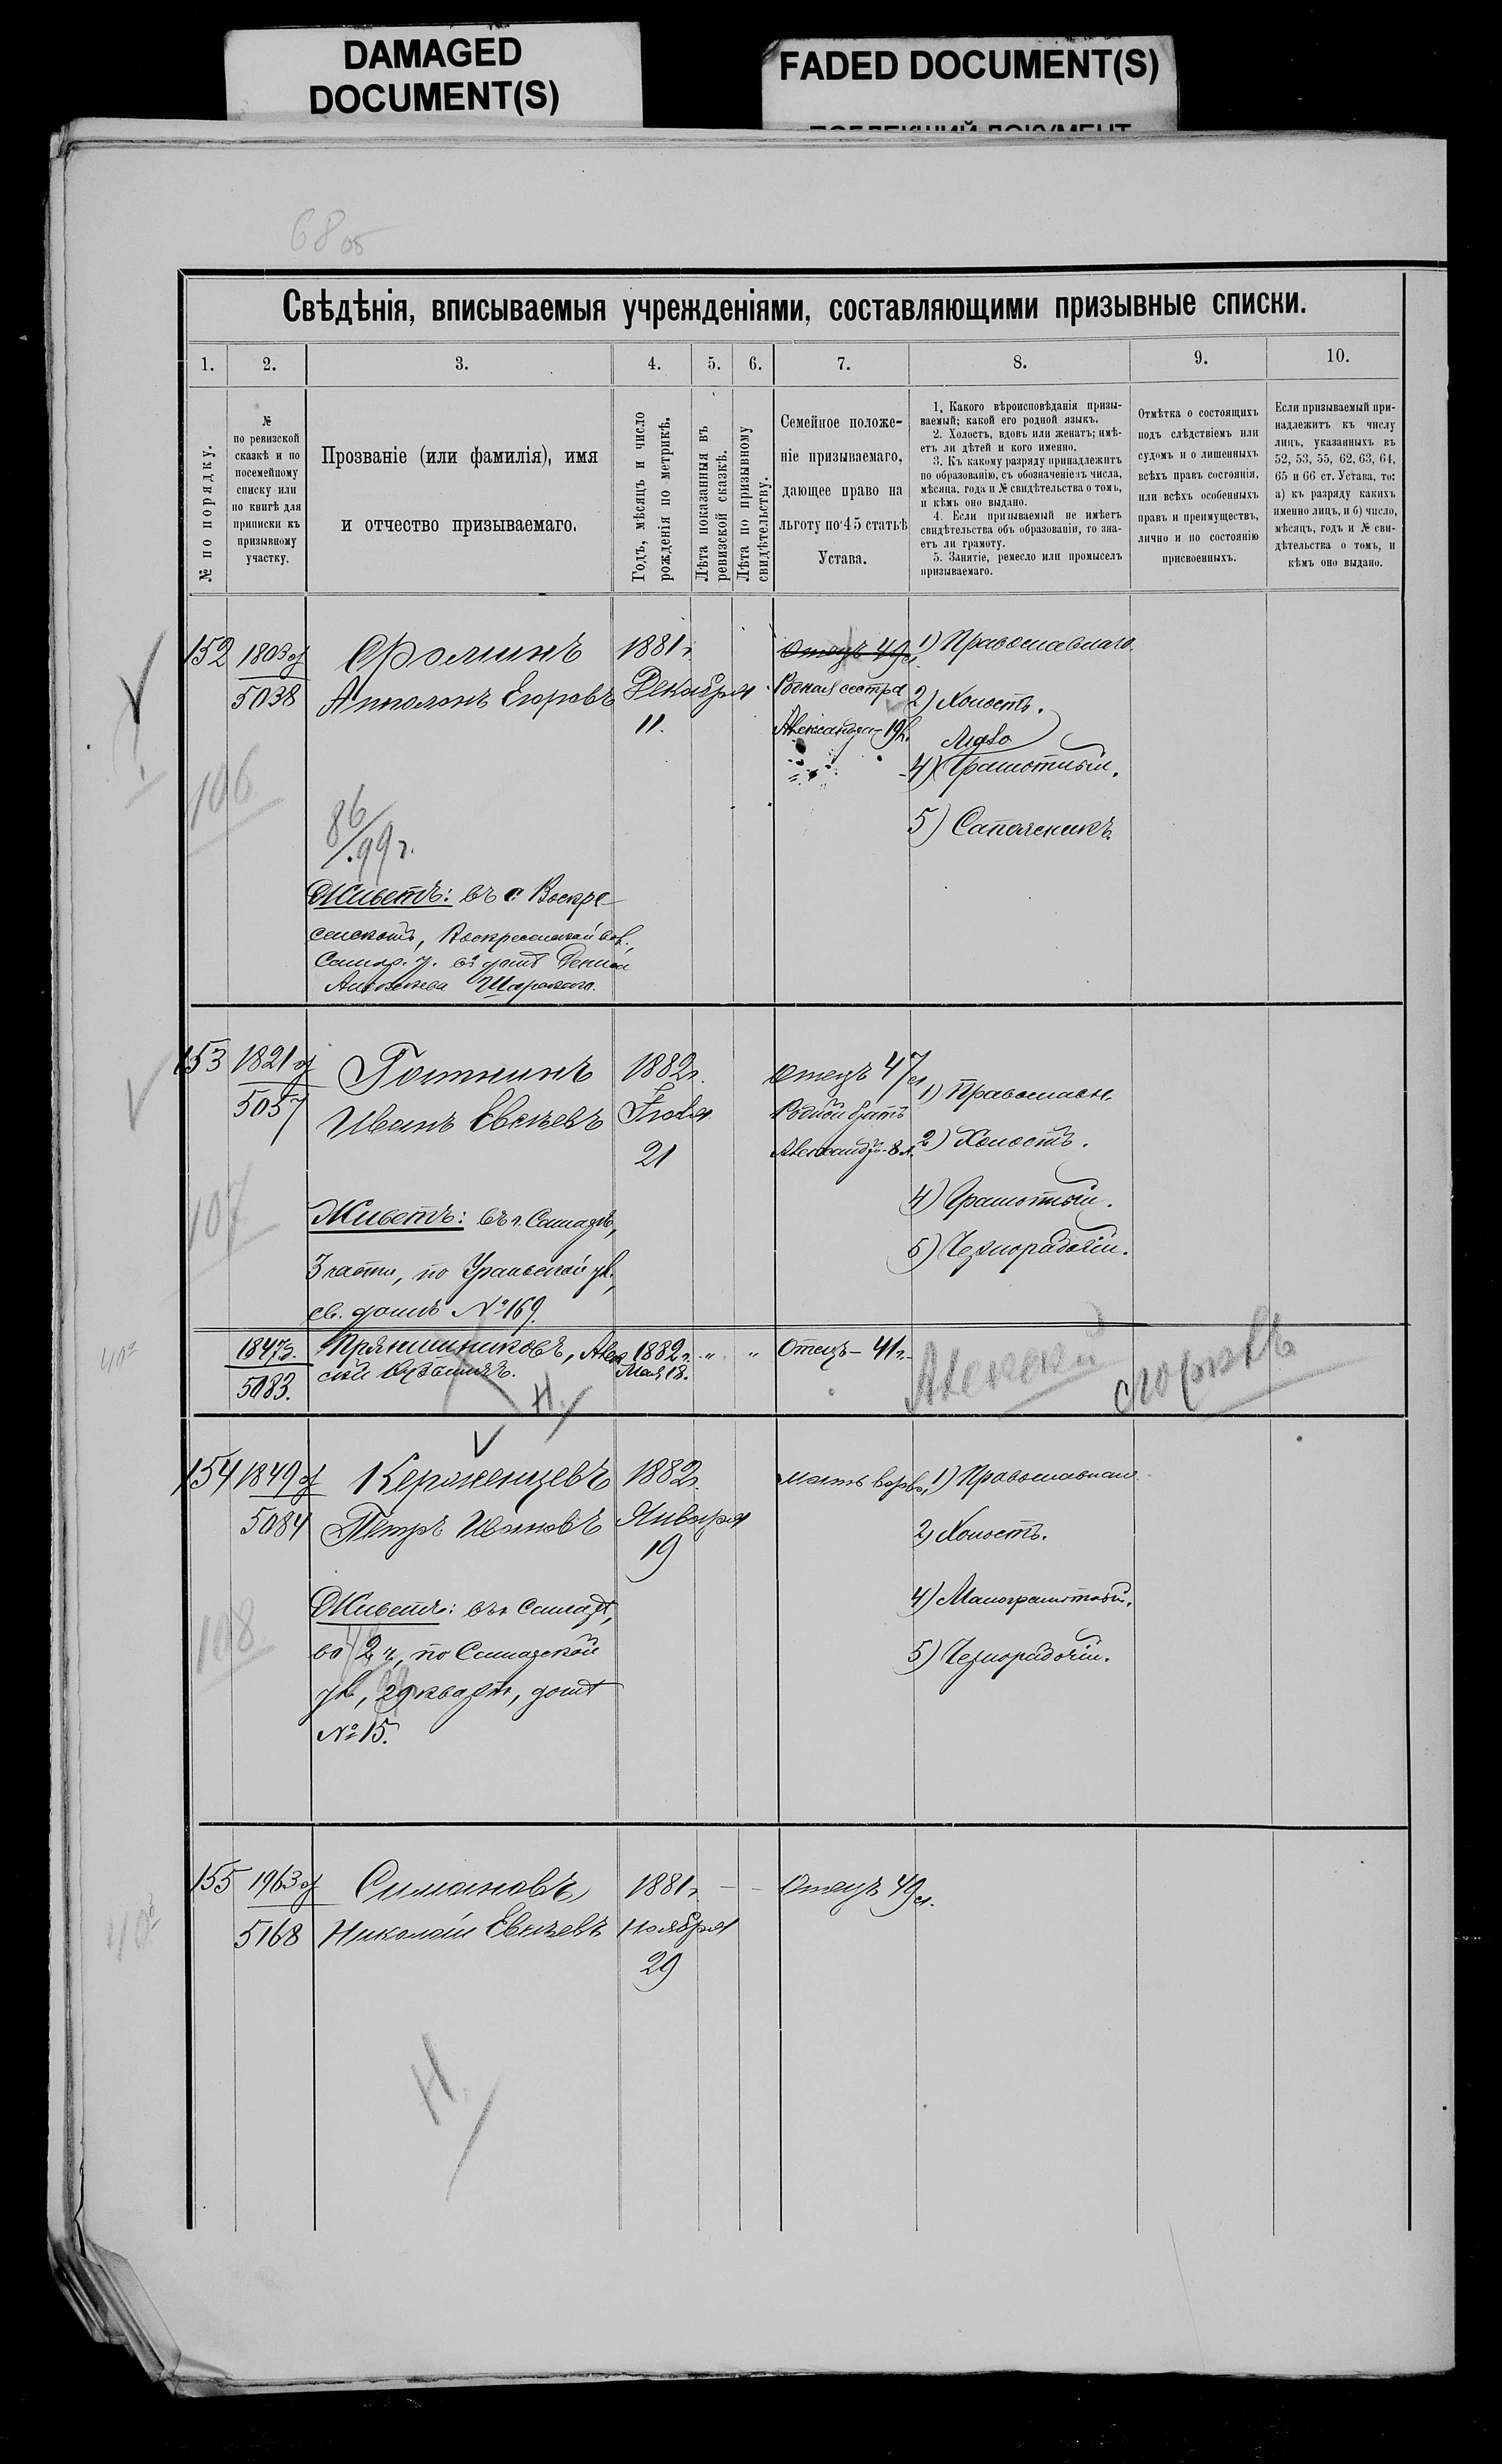 DAMAGED
DOCUMENT(S)
FADED DOCUMENT(S)
68 об
Свѣдѣнія, вписываемыя учрежденіями, составляющими призывные списки.
1. 2. 3. 4. 5. 6. 7. 8. 9. 10.
№ по порядку.
№
по ревизской
сказкѣ и по
посемейному
списку или
по книгѣ для
приписки къ
призывному
участку.
Прозваніе (или фамилія), имя
и отчество призываемаго.
Годъ, мѣсяцъ и число
рожденія по метрикѣ.
Лѣта показанныя въ
ревизской сказкѣ.
Лѣта по призывному
свидѣтельству.
Семейное положе-
ніе призываемаго,
дающее право на
льготу по 45 статьѣ
Устава.
1. Какого вѣроисповѣданія призы-
ваемый; какой его родной языкъ.
2. Холостъ, вдовъ или женатъ; имѣ-
етъ ли дѣтей и кого именно.
3. Къ какому разряду принадлежитъ
по образованію, съ обозначеніемъ числа,
мѣсяца, года и № свидѣтельства о томъ,
и кѣмъ оно выдано.
4. Если призываемый не имѣетъ
свидѣтельства объ образованіи, то зна-
етъ ли грамоту.
5. Занятіе, ремесло или промыселъ
призываемаго.
Отмѣтка о состоящихъ
подъ слѣдствіемъ или
судомъ и о лишенныхъ
всѣхъ правъ состоянія,
или всѣхъ особенныхъ
правъ и преимуществъ,
лично и по состоянію
присвоенныхъ.
Если призываемый при-
надлежитъ къ числу
лицъ, указанныхъ въ
52, 53, 55, 62, 63, 64,
65 и 66 ст. Устава, то:
а) къ разряду какихъ
именно лицъ, и б) число,
мѣсяцъ, годъ и № сви-
дѣтельства о томъ, и
кѣмъ оно выдано.
152
1803
5038
Фоминъ
Апполонъ Егоровъ
1881 г.
Декабря
11.
Отецъ 49 л.
Родная сестра
Александра - 19 л.
1) Православнаго
2) Холостъ.
4) Грамотный.
5) Сапожникъ
106
86/99 г.
Живетъ: въ с. Воскре
сенскомъ, Воскресенской вол.,
Самар. у. въ домѣ
153
1821
5057
Иванъ Евсѣевъ
1882 г.
21
Отецъ 47 л.
Родной братъ
Александръ - 8 л.
1) Православн.
2) Холостъ.
4) Грамотный.
5) Чернорабочій.
107
Живетъ: въ г. Самарѣ,
3 части, по Уральской ул.,
св. домъ № 169.
1847
5083.
Прянишниковъ, Алек
сѣй
1882 г. „ „
Мая 18.
Отецъ - 41 г.
Алексѣй
Н.
154
1849
5084
Керженцевъ
Петръ Ивановъ
1882 г.
Января
19
Мать вдова,
1) Православнаго
2) Холостъ.
4) Малограмотный.
5) Чернорабочій.
108
Живетъ: въ г. Самарѣ,
во 2 ч, по Самарской
ул, 29 кварт, домъ
№ 15.
155
1963
5168
Симановъ,
Николай Евсѣевъ
1881 г.
Ноября
29
Отецъ 49 л.
Н.